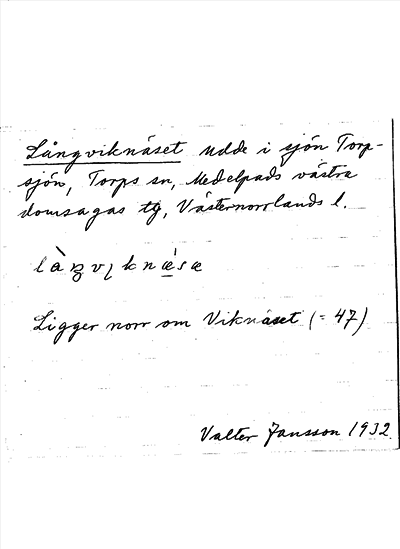 Långviknäset udde i sjön Torp-
sjön, Torps sn, Medelpads västra
domsagas tg, Västernorrlands l.
Ligger norr om Viknäset (= 47)
Valter Jansson 1932.